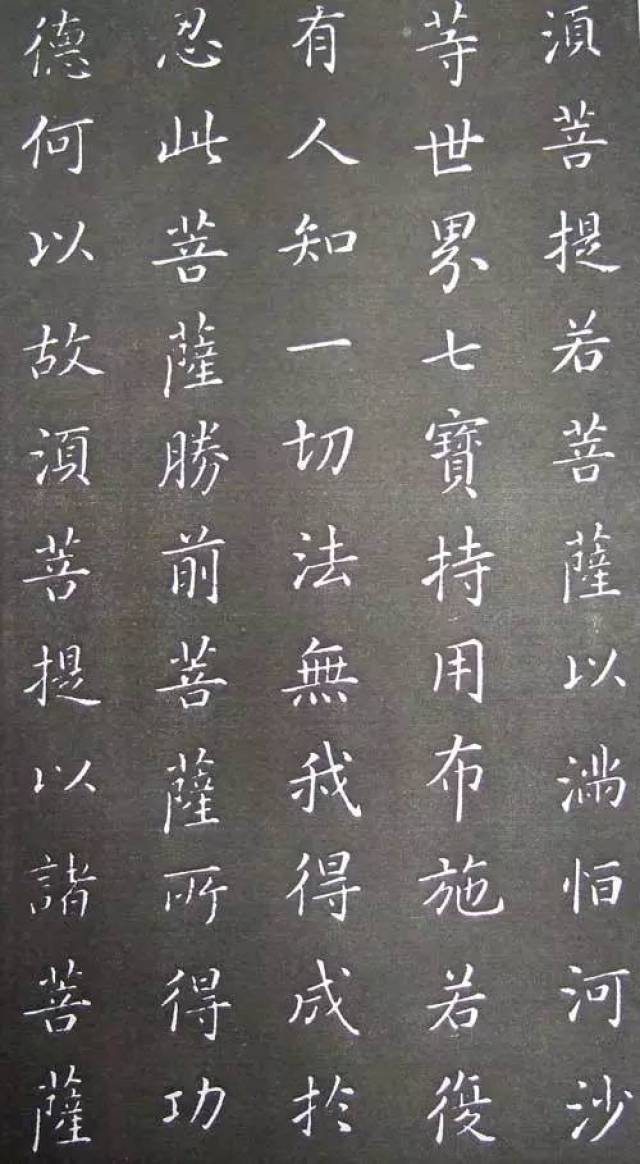 須菩提若菩薩以滿恒河沙
等世界七寶持用布施若復
有人知一切法無我得成於
忍此菩薩勝前菩薩所得功
德何以故須菩提以諸菩薩